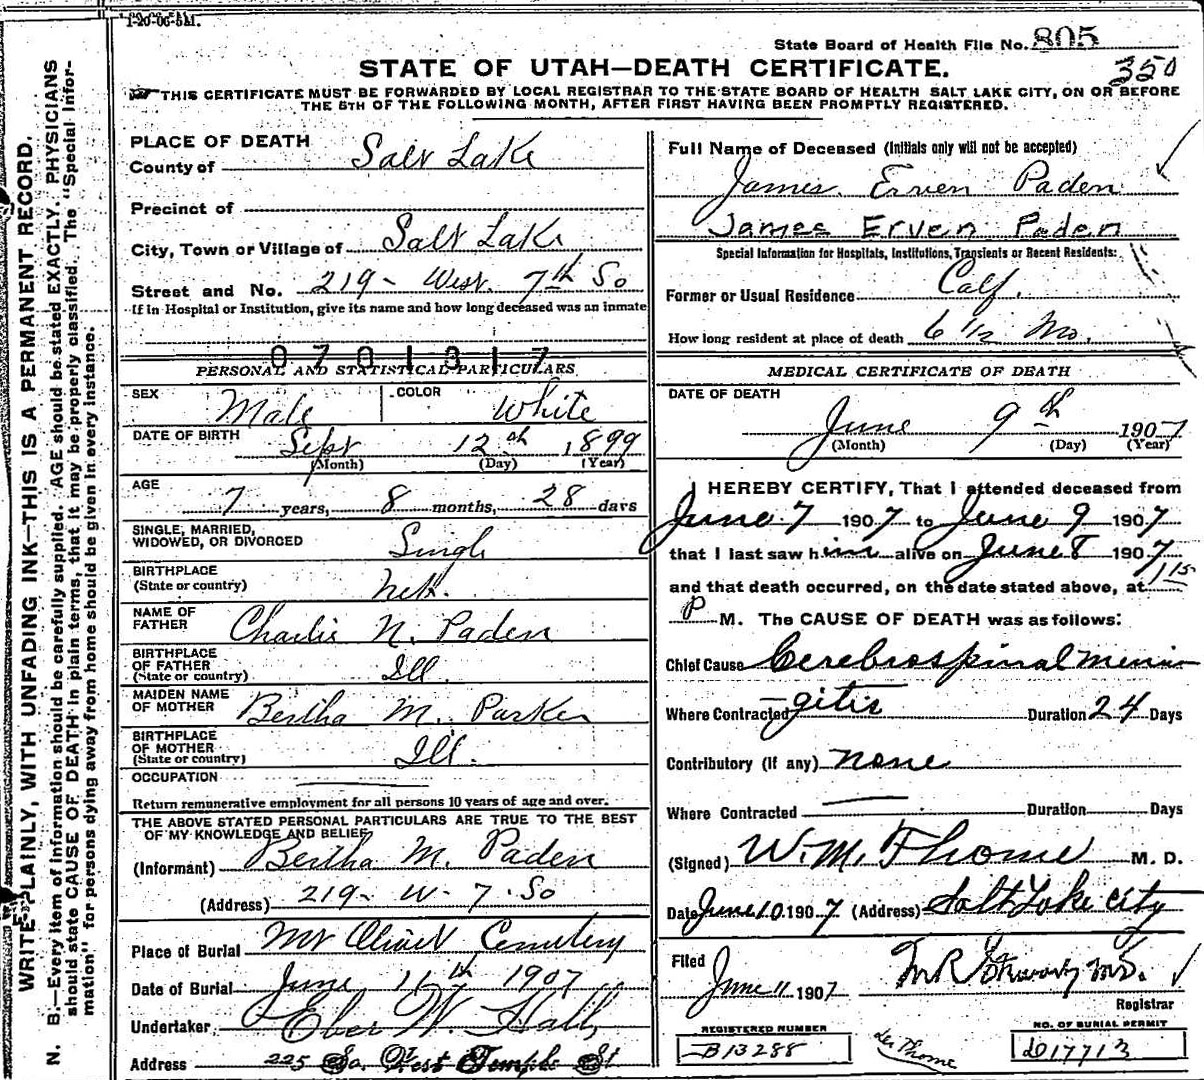 1-20-06-5M.
State Board of Health File No. 805
350
STATE OF UTAH—DEATH CERTIFICATE.
THIS CERTIFICATE MUST BE FORWARDED BY LOCAL REGISTRAR TO THE STATE BOARD OF HEALTH SALT LAKE CITY, ON OR BEFORE
THE 5TH OF THE FOLLOWING MONTH, AFTER FIRST HAVING BEEN PROMPTLY REGISTERED.
WRITE PLAINLY, WITH UNFADING INK—THIS IS A PERMANENT RECORD.
N. B.—Every item of information should be carefully supplied. AGE should be stated EXACTLY. PHYSICIANS
should state CAUSE OF DEATH in plain terms, that it may be properly classified. The "Special Infor-
mation" for persons dying away from home should be given in every instance.
PLACE OF DEATH
County of Salt Lake
Precinct of
City, Town or Village of Salt Lake
Street and No. 219 - West 7th So
If in Hospital or Institution, give its name and how long deceased was an inmate
0701317
PERSONAL AND STATISTICAL PARTICULARS
SEX Male COLOR White
DATE OF BIRTH Sept 12th 1899
(Month) (Day) (Year)
AGE 7 years, 8 months, 28 days
SINGLE, MARRIED,
WIDOWED, OR DIVORCED Single
BIRTHPLACE
(State or country) Neb.
NAME OF
FATHER Charlie N. Paden
BIRTHPLACE
OF FATHER
(State or country) Ill.
MAIDEN NAME
OF MOTHER Bertha M. Parker
BIRTHPLACE
OF MOTHER
(State or country) Ill.
OCCUPATION
Return remunerative employment for all persons 10 years of age and over.
THE ABOVE STATED PERSONAL PARTICULARS ARE TRUE TO THE BEST
OF MY KNOWLEDGE AND BELIEF
(Informant) Bertha M. Paden
(Address) 219 - W - 7 - So
Place of Burial Mt Olivet Cemetery
Date of Burial June 11th 1907
Undertaker Eber W. Hall
Address 225 So. West Temple St
Full Name of Deceased (Initials only will not be accepted)
James Erven Paden
James Erven Paden
Special Information for Hospitals, Institutions, Transients or Recent Residents:
Former or Usual Residence Calf.
How long resident at place of death 6 1/2 Mo.
MEDICAL CERTIFICATE OF DEATH
DATE OF DEATH
June 9th 1907
(Month) (Day) (Year)
I HEREBY CERTIFY, That I attended deceased from
June 7 1907 to June 9 1907
that I last saw him alive on June 8 1907
and that death occurred, on the date stated above, at 1 15
P M. The CAUSE OF DEATH was as follows:
Chief Cause Cerebrospinal menin
Where Contracted -gitis Duration 24 Days
Contributory (if any) none
Where Contracted Duration Days
(Signed) W. M. Thome M. D.
Date June 10 1907 (Address) Salt Lake City
Filed
June 11 1907 M R M.D.
Registrar
REGISTERED NUMBER
B13288
Thome
NO. OF BURIAL PERMIT
D17713